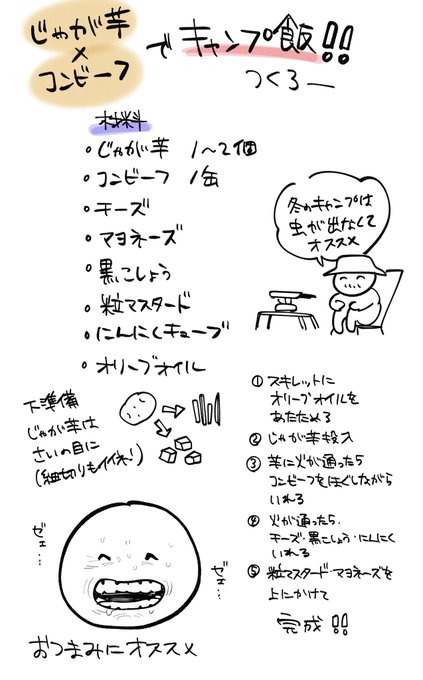 じゃが芋
×
コンビーフ
でキャンプ飯!!
つくろー
材料
・じゃが芋 1〜2個
・コンビーフ 1缶
・チーズ
・マヨネーズ
・黒こしょう
・粒マスタード
・にんにくキューブ
・オリーブオイル
冬のキャンプは
虫が出なくて
オススメ
下準備
じゃが芋は
さいの目に
(細切りもイイネ!)
① スキレットに
オリーブオイルを
あたためる
② じゃが芋投入
③ 芋に火が通ったら
コンビーフをほぐしながら
いれる
④ 火が通ったら、
チーズ・黒こしょう・にんにく
いれる
⑤ 粒マスタード・マヨネーズを
上にかけて
完成!!
ゼェ…
ゼェ…
おつまみにオススメ